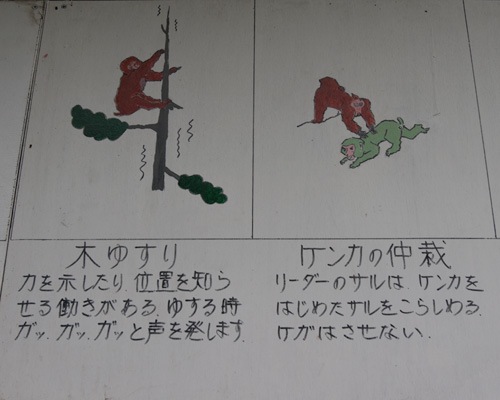 木ゆすり
力を示したり、位置を知ら
せる働きがある。ゆする時
ガッ、ガッ、ガッと声を発します。
ケンカの仲裁
リーダーのサルは、ケンカを
はじめたサルをこらしめる。
ケガはさせない。